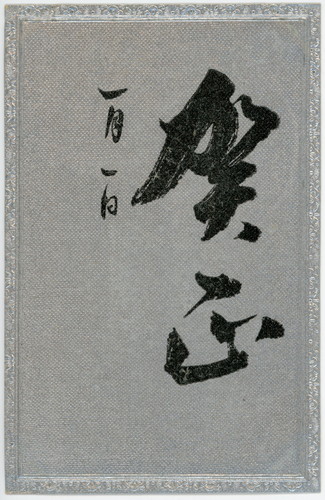 賀正
一月一日